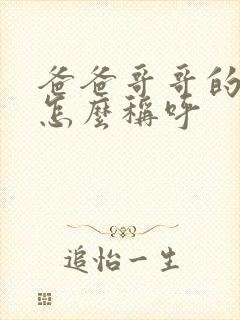 爸爸哥哥的
怎麼稱呼
追怡一生